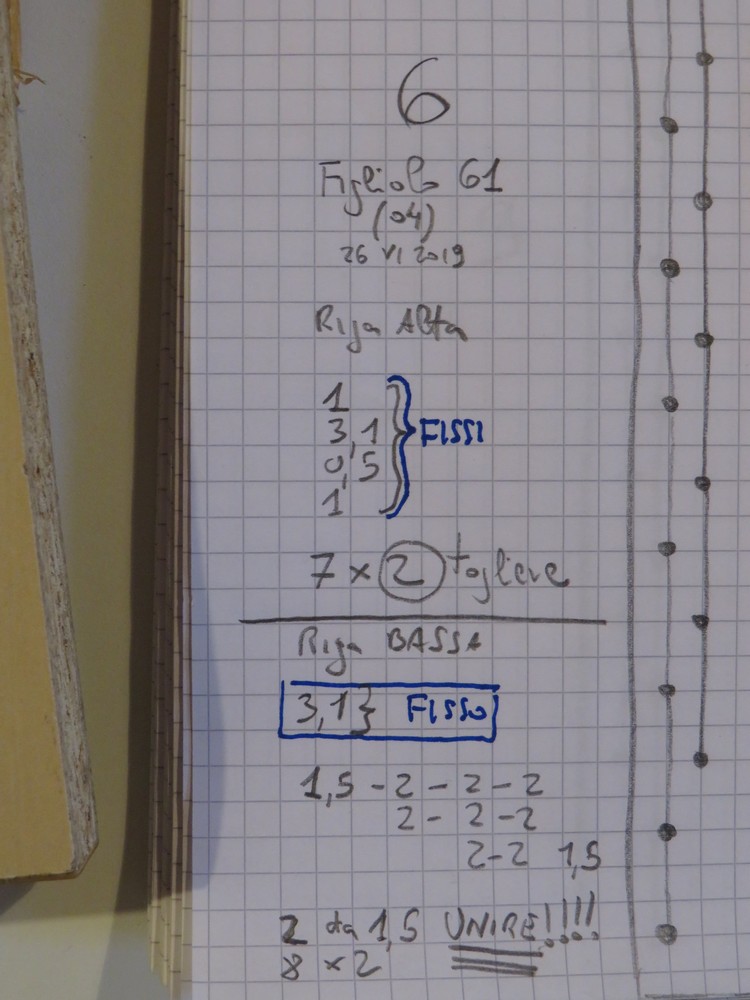 6
Figliolo 61
(04)
26 VI 2019
Riga Alta
1
3,1
0,5
1
} FISSI
7 x 2 togliere
Riga BASSA
3,1} FISSO
1,5 - 2 - 2 - 2
2 - 2 - 2
2 - 2 1,5
2 da 1,5 UNIRE!!!!
8 x 2